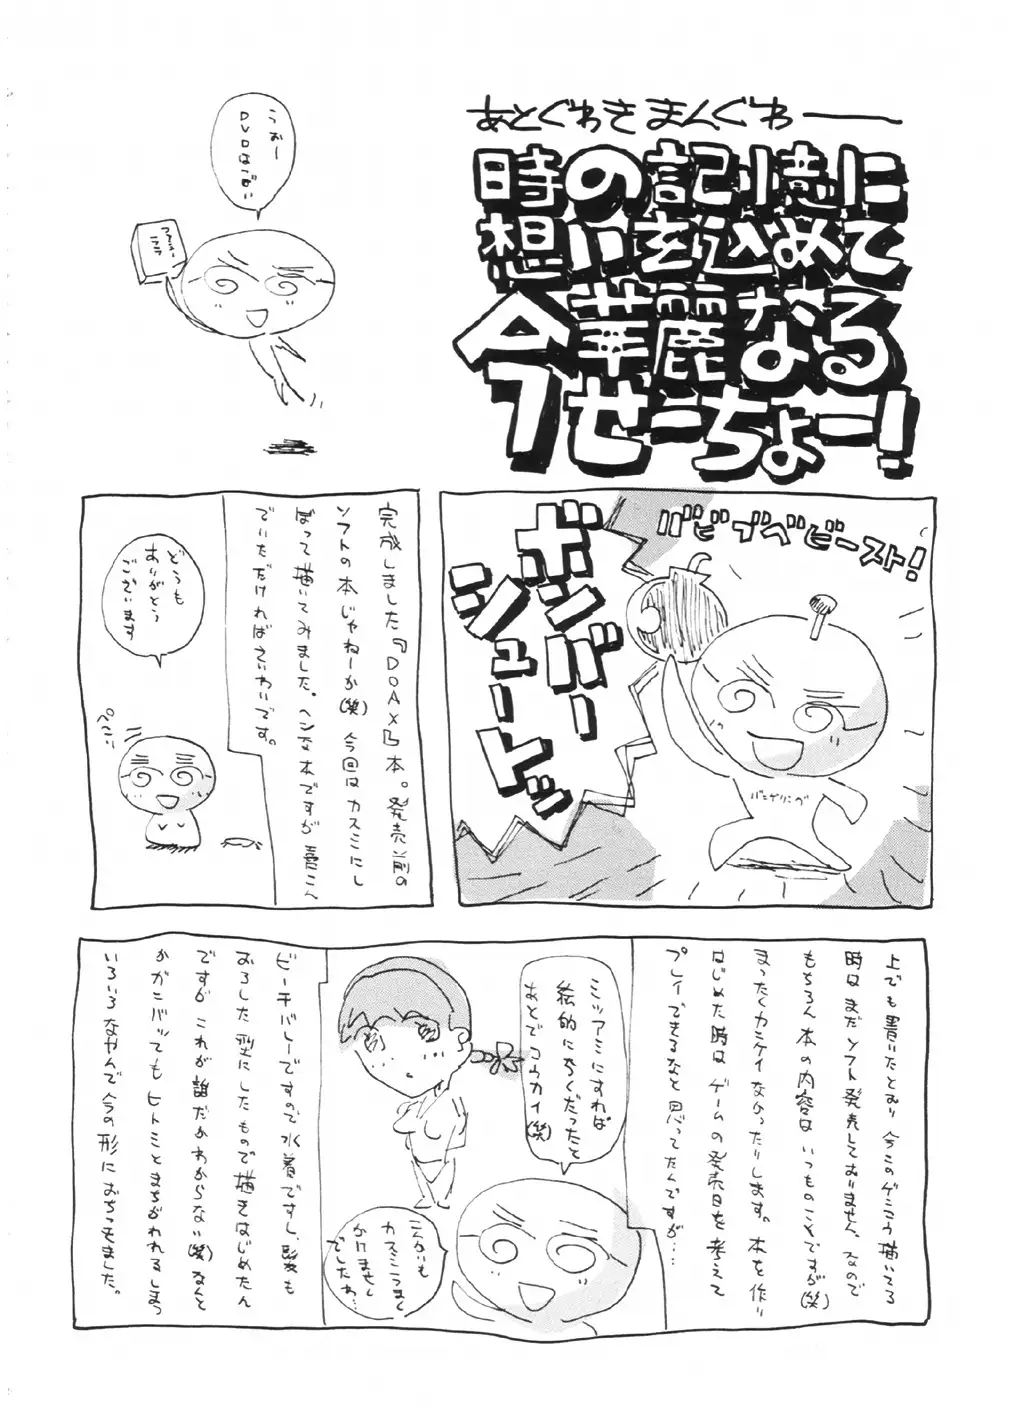 あとぐわき まんぐわ——
時の記憶に
想いを込めて
今華麗なる
せーちょー!
うおー
DVDはごい
バビブベビースト!
ボンバー
シュートッ
バンゲリング
完成しました『DOAX』本。発売前の
ソフトの本じゃねーか(笑)今回はカスミにし
ぼって描いてみました。ヘンな本ですが
でいただければさいわいです。
どうも
ありがとう
ございます
ぺこり
上でも書いたとおり 今このゲンコウ描いてる
時はまだソフト発売しておりません。なので
もちろん本の内容はいつものことですが(笑)
まったくカンケイなかったりします。本を作り
はじめた時はゲームの発売日を考えて
プレイできるなと思ってたんですが…
ミツアミにすれば
絵的に楽だったと
あとでコウカイ(笑)
こんかいも
カスミこうまく
かけません
でしたね…
ビーチバレーですので水着ですし、髪も
おろした型にしたもので描きはじめたん
ですが これが誰だかわからない(笑)なんと
かガンバッてもヒトミとまちがわれるしまつ
いろいろなやんで今の形におちつきました。